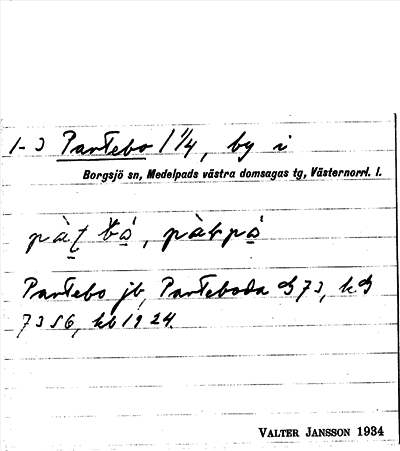 1-3 Partebo 1 1/4, by i
Borgsjö sn, Medelpads västra domsagas tg, Västernorrl. l.
Partebo jb, Parteboda
7356, kb 1924.
VALTER JANSSON 1934